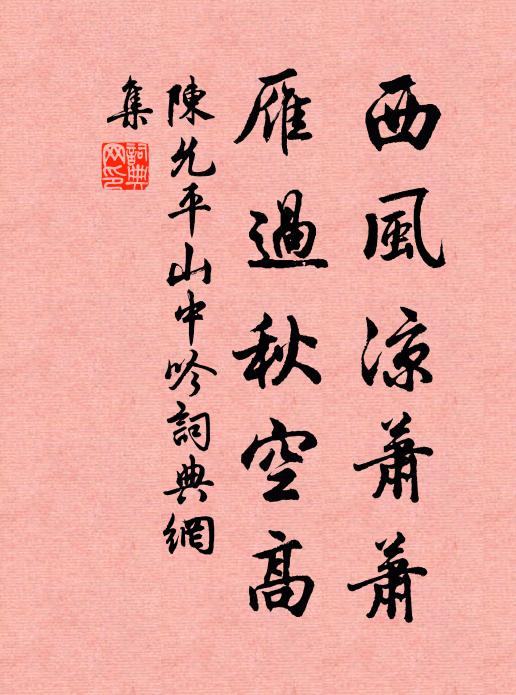 西風涼蕭蕭
雁過秋空高
陳允平山中吟詞典網
集
詞典
网印